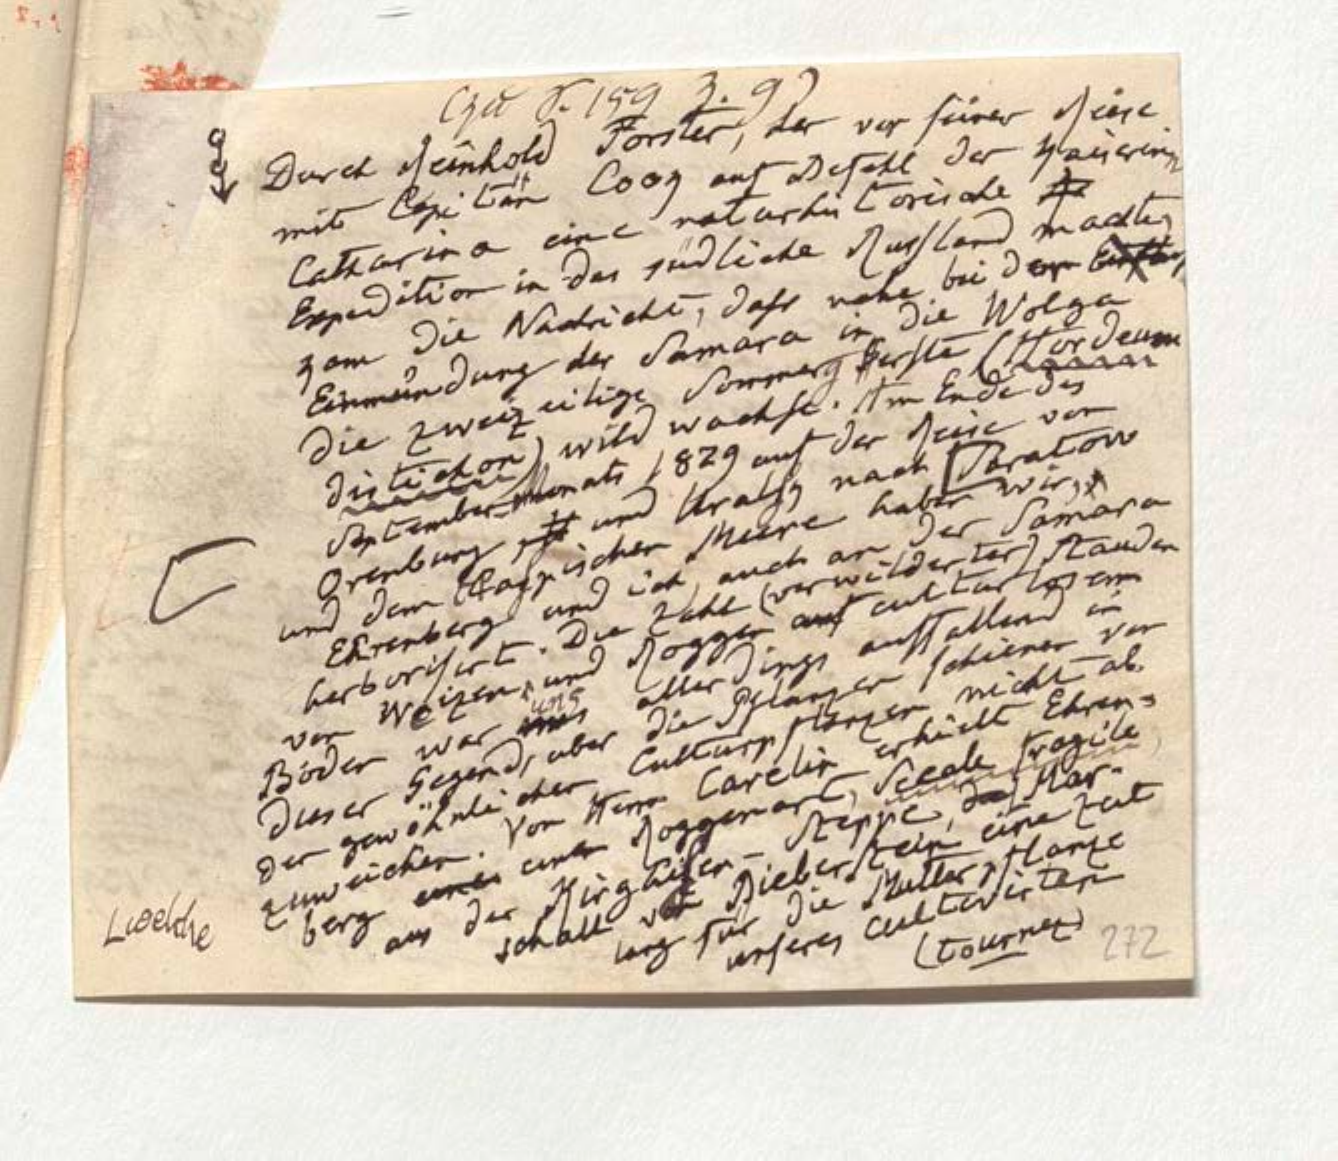 (zu S. 159 Z. 9)
Durch Reinhold Forster, der vor seiner Reise
mit Capitän Cook auf Befehl der Kaiserin
Catharina eine naturhistorische
Expedition in das südliche Russland machte,
kam die Nachricht, dass nahe bei der
Einmündung der Samara in die Wolga
die zweizeilige Sommergerste (Hordeum
distichon) wild wachse. Am Ende des
Septembermonats 1829 auf der Reise von
Orenburg und Uralsk nach Saratow
und dem Caspischen Meere haben wir,
Ehrenberg und ich, auch an der Samara
herborisirt. Die Zahl (verwilderter) Stauden
von Weizen und Roggen auf culturlosem
Boden war uns allerdings auffallend in
dieser Gegend, aber die Pflanzen schienen von
der gewöhnlichen Culturpflanzen nicht ab
zuweichen. Von Herrn Carelin erhielt Ehren-
berg einen Roggenart, Secale fragile
aus der Kirghisen-Steppe, das Mar-
schall von Bieberstein eine Zeit
lang für die Mutterpflanze
unseres cultivirten
(tournez)
Lwelche
272